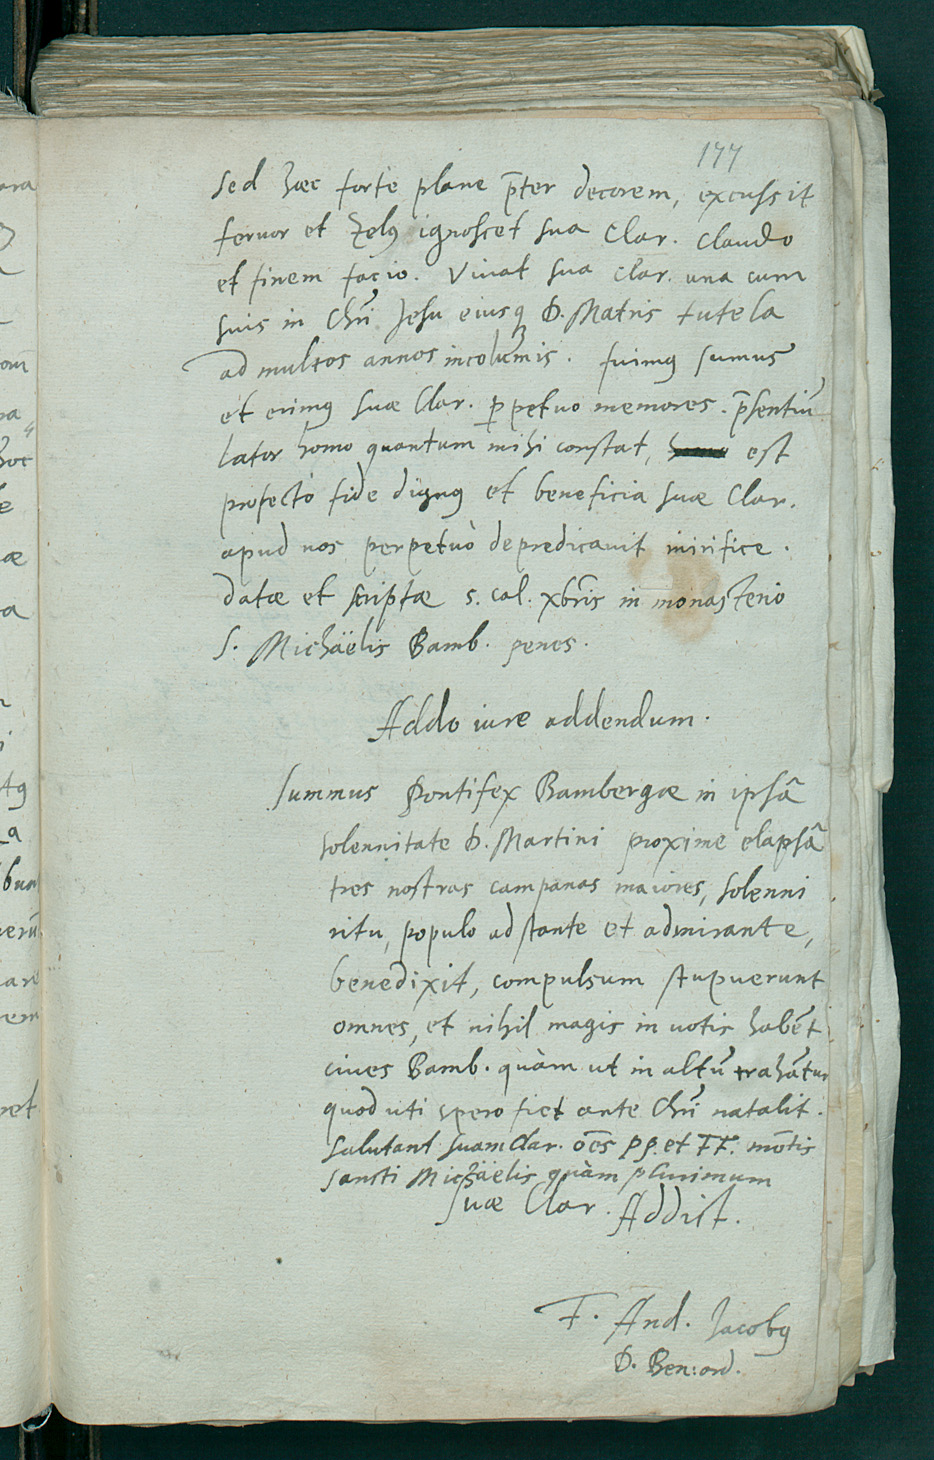 177
sed haec forte plane p̄ter decorem, excussit
feruor et zelꝰ ignoscet sua Clar. claudo
et finem facio. Viuat sua Clar. una cum
suis in Chr̄i Jesu eiusq̢ D. Matris tutela
ad multos annos incolumis. fuimꝰ sumus
et erimꝰ suae Clar. ꝑpetuo memores. p̄sentiū
lator homo quantum mihi constat, est
profectò fide dignꝰ et beneficia suae Clar.
apud nos perpetuò depredicauit mirifice.
datae et scriptae 5. cal. xbr̄is in monasterio
S. Michäelis Bamb. penes.
Addo iure addendum.
Summus Pontifex Bambergae in ipsâ
solennitate D. Martini proxime elapsâ
tres nostras campanas maiores, solenni
ritu, populo adstante et admirante,
benedixit, compulsum stupuerunt
omnes, et nihil magis in uotis habēt
ciues Bamb. quàm ut in altū trahātur
quod uti spero fiet ante Chr̄i natalit.
Salutant suam Clar. oēs PP. et FF. mōtis
sancti Michäelis quàm plurimum
suae Clar. Addict.
F. And. Jacobꝰ
D. Ben: ord.